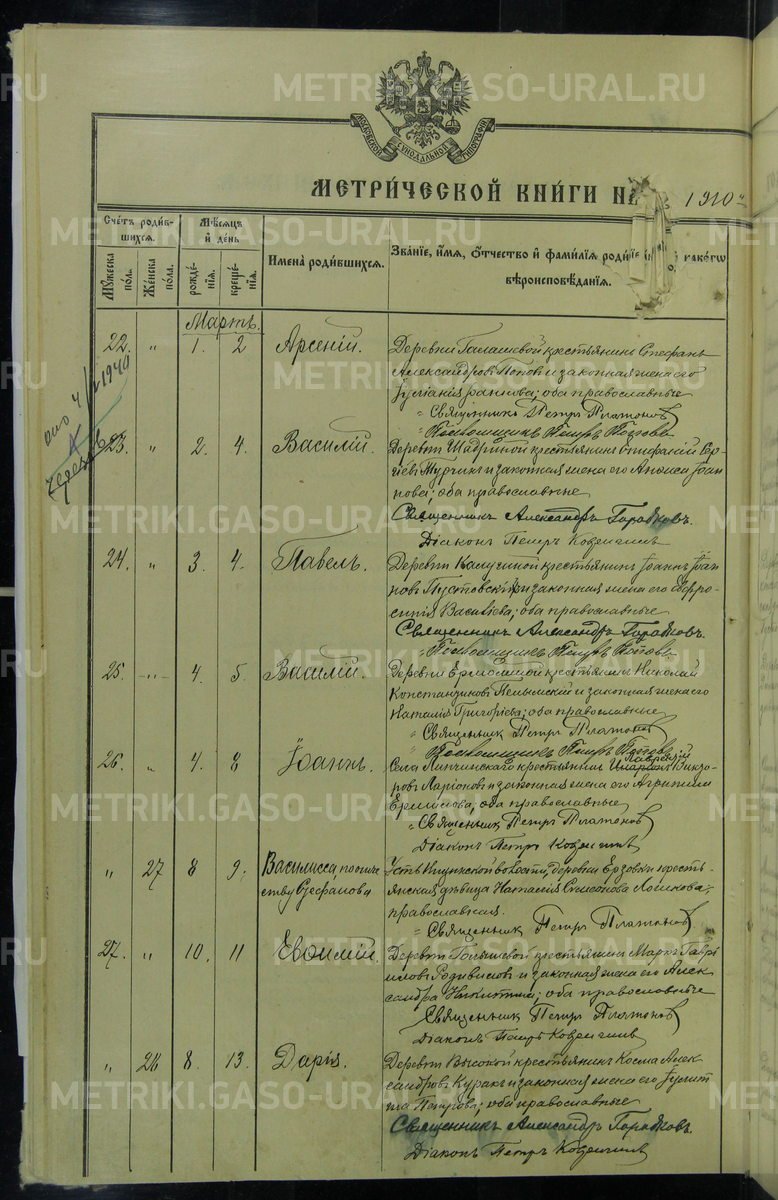 МОСКОВСКОЙ СѴНОДАЛЬНОЙ ТИПОГРАФІИ
МЕТРИ́ЧЕСКОЙ КНИ́ГИ НА 1910
Сче́тъ роди́в-
шихся.
Мѣ́сяцъ
и́ де́нь
Имена̀ роди́вшихся.
Мꙋ́жеска
по́л.
Же́нска
по́ла.
рожде́-
нія.
креще́-
нія.
Зва́ніе, и́мя, ѻ҆́тчество и́ фами́лія роди́те како́гѡ
вѣроисповѣ́данія.
Мартъ.
22. " 1. 2 Арсеній.
Деревни Галашевой крестьянинъ Стефанъ
Александровъ Поповъ и законная жена его
Іуліанія Іоаннова; оба православные
Священникъ Петръ Платоновъ
Псаломщикъ Петръ Поповъ
23. " 2. 4. Василій.
Деревни Шадриной крестьянинъ Епифаній Сер-
гіевъ и законная жена его Анисія Іоан-
нова; оба православные
Священникъ Александръ Горбковъ.
Діаконъ Петръ Ковригинъ
24. " 3. 4. Павелъ.
Деревни Калугиной крестьянинъ Іоаннъ Іоан-
новъ и законная жена его Евфро-
синія Васильева; оба православные
Священникъ Александръ Горбковъ.
Псаломщикъ Петръ Поповъ
25. " 4. 5. Василій.
Деревни крестьянинъ Николай
Константиновъ Пелымскій и законная жена его
Наталія Григоріева; оба православные
Священникъ Петръ Платоновъ
Псаломщикъ Петръ Поповъ
26. " 4. 8 Іоаннъ.
Села Липчинскаго крестьянинъ Викто-
ровъ Ларіоновъ и законная жена его Агрипина
Ермилова, оба православные
Священникъ Петръ Платоновъ
Діаконъ Петръ Ковригинъ
" 27 8 9. Василисса, по отче-
ству Стефанова
волости, деревни Ерзовки кресть-
янская дѣвица Наталія Симеонова Логинова,
православная.
Священникъ Петръ Платоновъ
27. " 10. 11 Евѳимій.
Деревни крестьянинъ Маркъ Гаврі-
иловъ Родивиловъ и законная жена его Алек-
сандра Никитина; оба православные
Священникъ Петръ Платоновъ
Діаконъ Петръ Ковригинъ
" 28 8. 13. Дарія.
Деревни Высокой крестьянинъ Косма Алек-
сандровъ и законная жена его Іулит-
та Петрова; оба православные
Священникъ Александръ Горбковъ.
Діаконъ Петръ Ковригинъ
METRIKI.GASO-URAL.RU